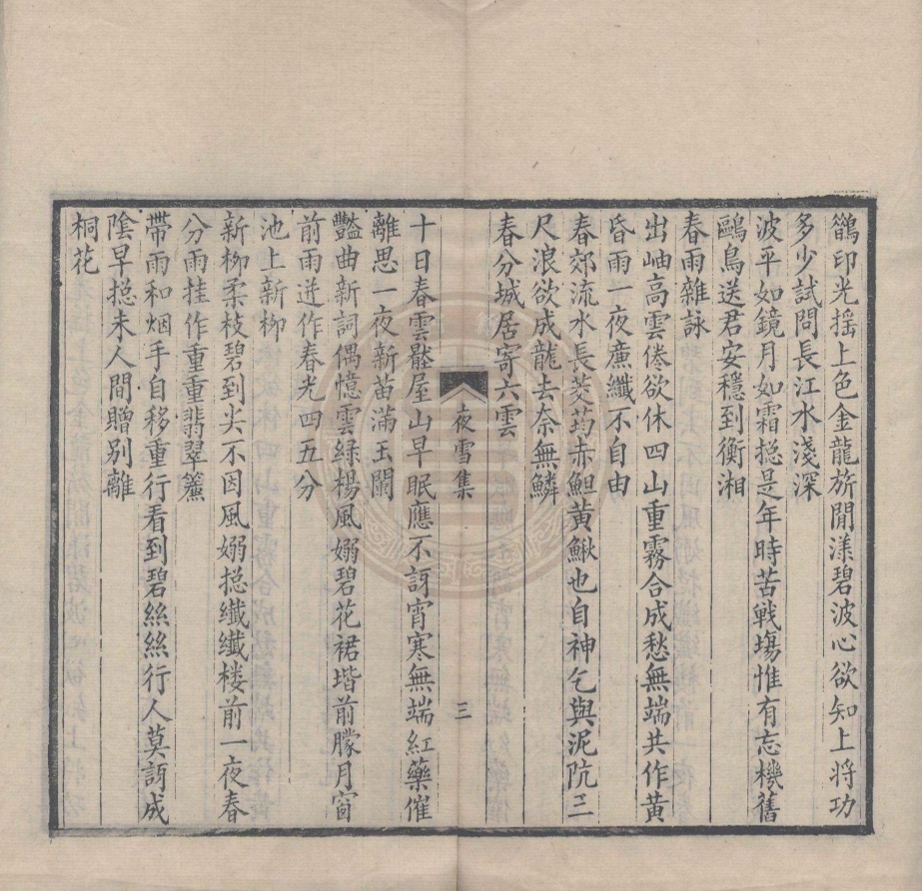 鵲印光搖上色金龍旂閒漾碧波心欲知上將功
多少試問長江水淺深
波平如鏡月如霜捴是年時苦戰塲惟有忘機舊
鷗鳥送君安穩到衡湘
春雨雜詠
出岫高雲倦欲休四山重霧合成愁無端共作黃
昏雨一夜廉纖不自由
春郊流水長茭芶赤䱇黃鰍也自神乞與泥阬三
尺浪欲成龍去奈無鱗
春分城居寄六雲
夜雪集
三
十日春雲壓屋山早眠應不訝宵寒無端紅藥催
離思一夜新苗滿玉闌
豔曲新詞偶憶雲綠楊風嫋碧花裙堦前朦月窗
前雨迸作春光四五分
池上新柳
新柳柔枝碧到尖不因風嫋捴纖纖楼前一夜春
分雨挂作重重翡翠簾
帶雨和烟手自移重行看到碧絲絲行人莫訝成
陰早捴未人間贈别離
桐花